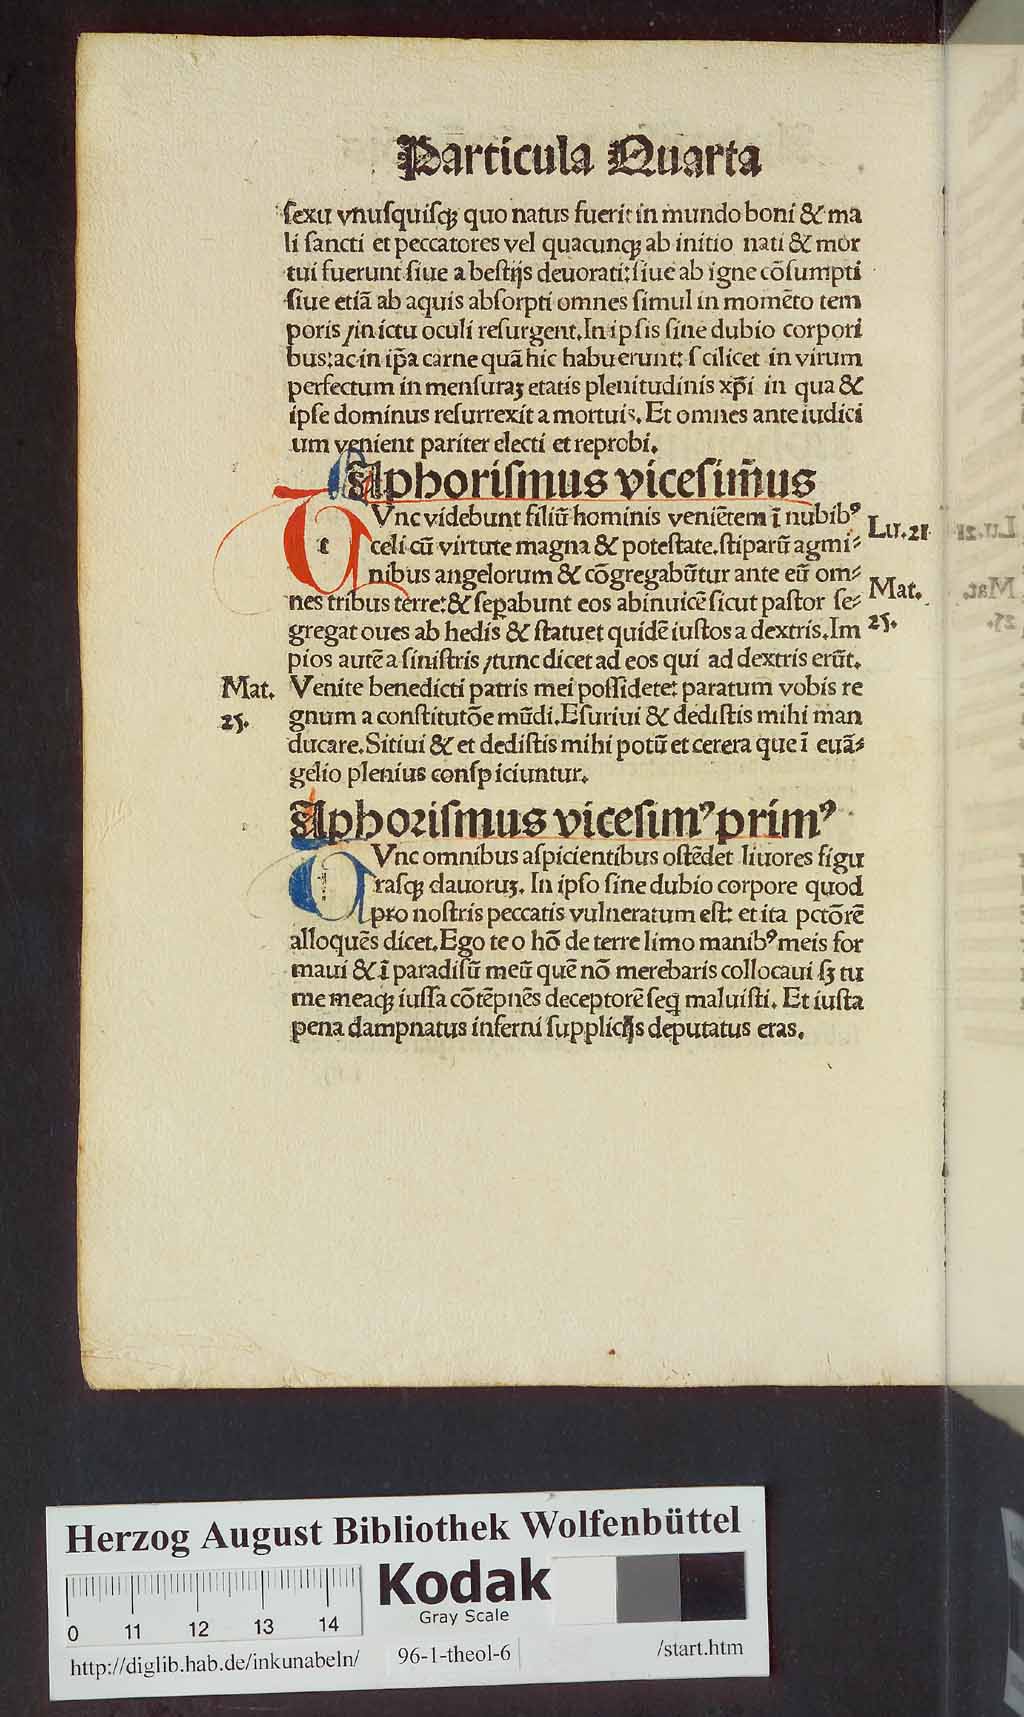 Particula Quarta
ſexu vnuſquiſqꝫ quo natus fuerit in mundo boni & ma
li ſancti et peccatores vel quacunqꝫ ab initio nati & mor
tui fuerunt ſiue a beſtijs deuorati: ſiue ab igne cōſumpti
ſiue etiā ab aquis abſorpti omnes ſimul in momēto tem
poris /in ictu oculi reſurgent. In ipſis ſine dubio corpori
bus: ac in ip̄a carne quā hic habuerunt: ſcilicet in virum
perfectum in menſuraꝫ etatis plenitudinis xp̄i in qua &
ipſe dominus reſurrexit a mortuis. Et omnes ante iudici
um venient pariter electi et reprobi.
Aphoriſmus viceſim̄us
TVnc videbunt filiū hominis veniētem ī nubibꝰ
celi cū virtute magna & poteſtate. ſtiparū agmi⸗
nibus angelorum & cōgregabūtur ante eū om⸗
nes tribus terre: & ſepabunt eos abinuicē ſicut paſtor ſe⸗
gregat oues ab hedis & ſtatuet quidē iuſtos a dextris. Im
pios autē a ſiniſtris /tunc dicet ad eos qui ad dextris erūt.
Venite benedicti patris mei poſſidete: paratum vobis re
gnum a conſtitutōe mūdi. Eſuriui & dediſtis mihi man
ducare. Sitiui & et dediſtis mihi potū et cerera que ī euā⸗
gelio plenius conſpiciuntur.
Lu. 21
Mat.
25.
Mat.
25.
Aphoriſmus viceſimꝰ primꝰ
TVnc omnibus aſpicientibus oſtēdet liuores figu
raſqꝫ clauoruꝫ. In ipſo ſine dubio corpore quod
pro noſtris peccatis vulneratum eſt: et ita pctōrē
alloquēs dicet. Ego te o hō de terre limo manibꝰ meis for
maui & ī paradiſū meū quē nō merebaris collocaui ſꝫ tu
me meaqꝫ iuſſa cōtēpnēs deceptorē ſeq̄ maluiſti. Et iuſta
pena dampnatus inferni ſupplicijs deputatus eras.
Herzog August Bibliothek Wolfenbüttel
Kodak
Gray Scale
0 11 12 13 14
http://diglib.hab.de/inkunabeln/ 96-1-theol-6 /start.htm